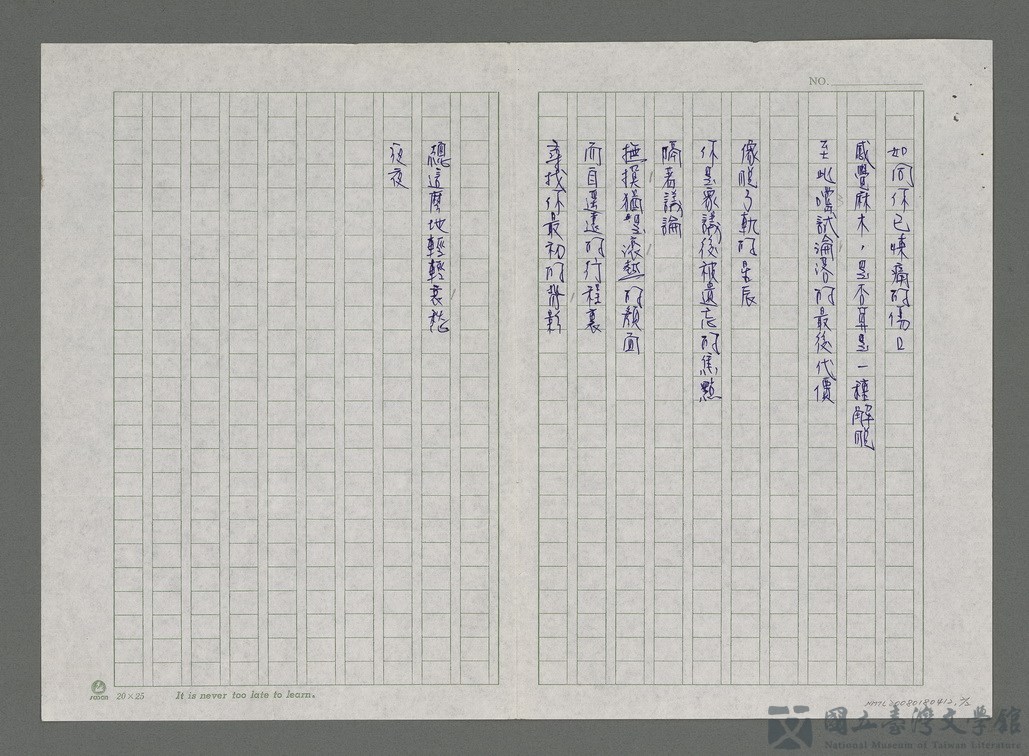 NO.
如何你已喫痛的傷口
感覺麻木,是否算是一種解脫
至此嚐試淪落的最後代價
像脫了軌的星辰
你是眾議後被遺忘的焦點
隔著議論
撫摸猶豫滾越的顏面
而自遙遠的行程裏
尋找你最初的背影
總這麼地輕輕哀愁
夜夜
20×25
It is never too late to learn.
國立臺灣文學館
National Museum of Taiwan Literature